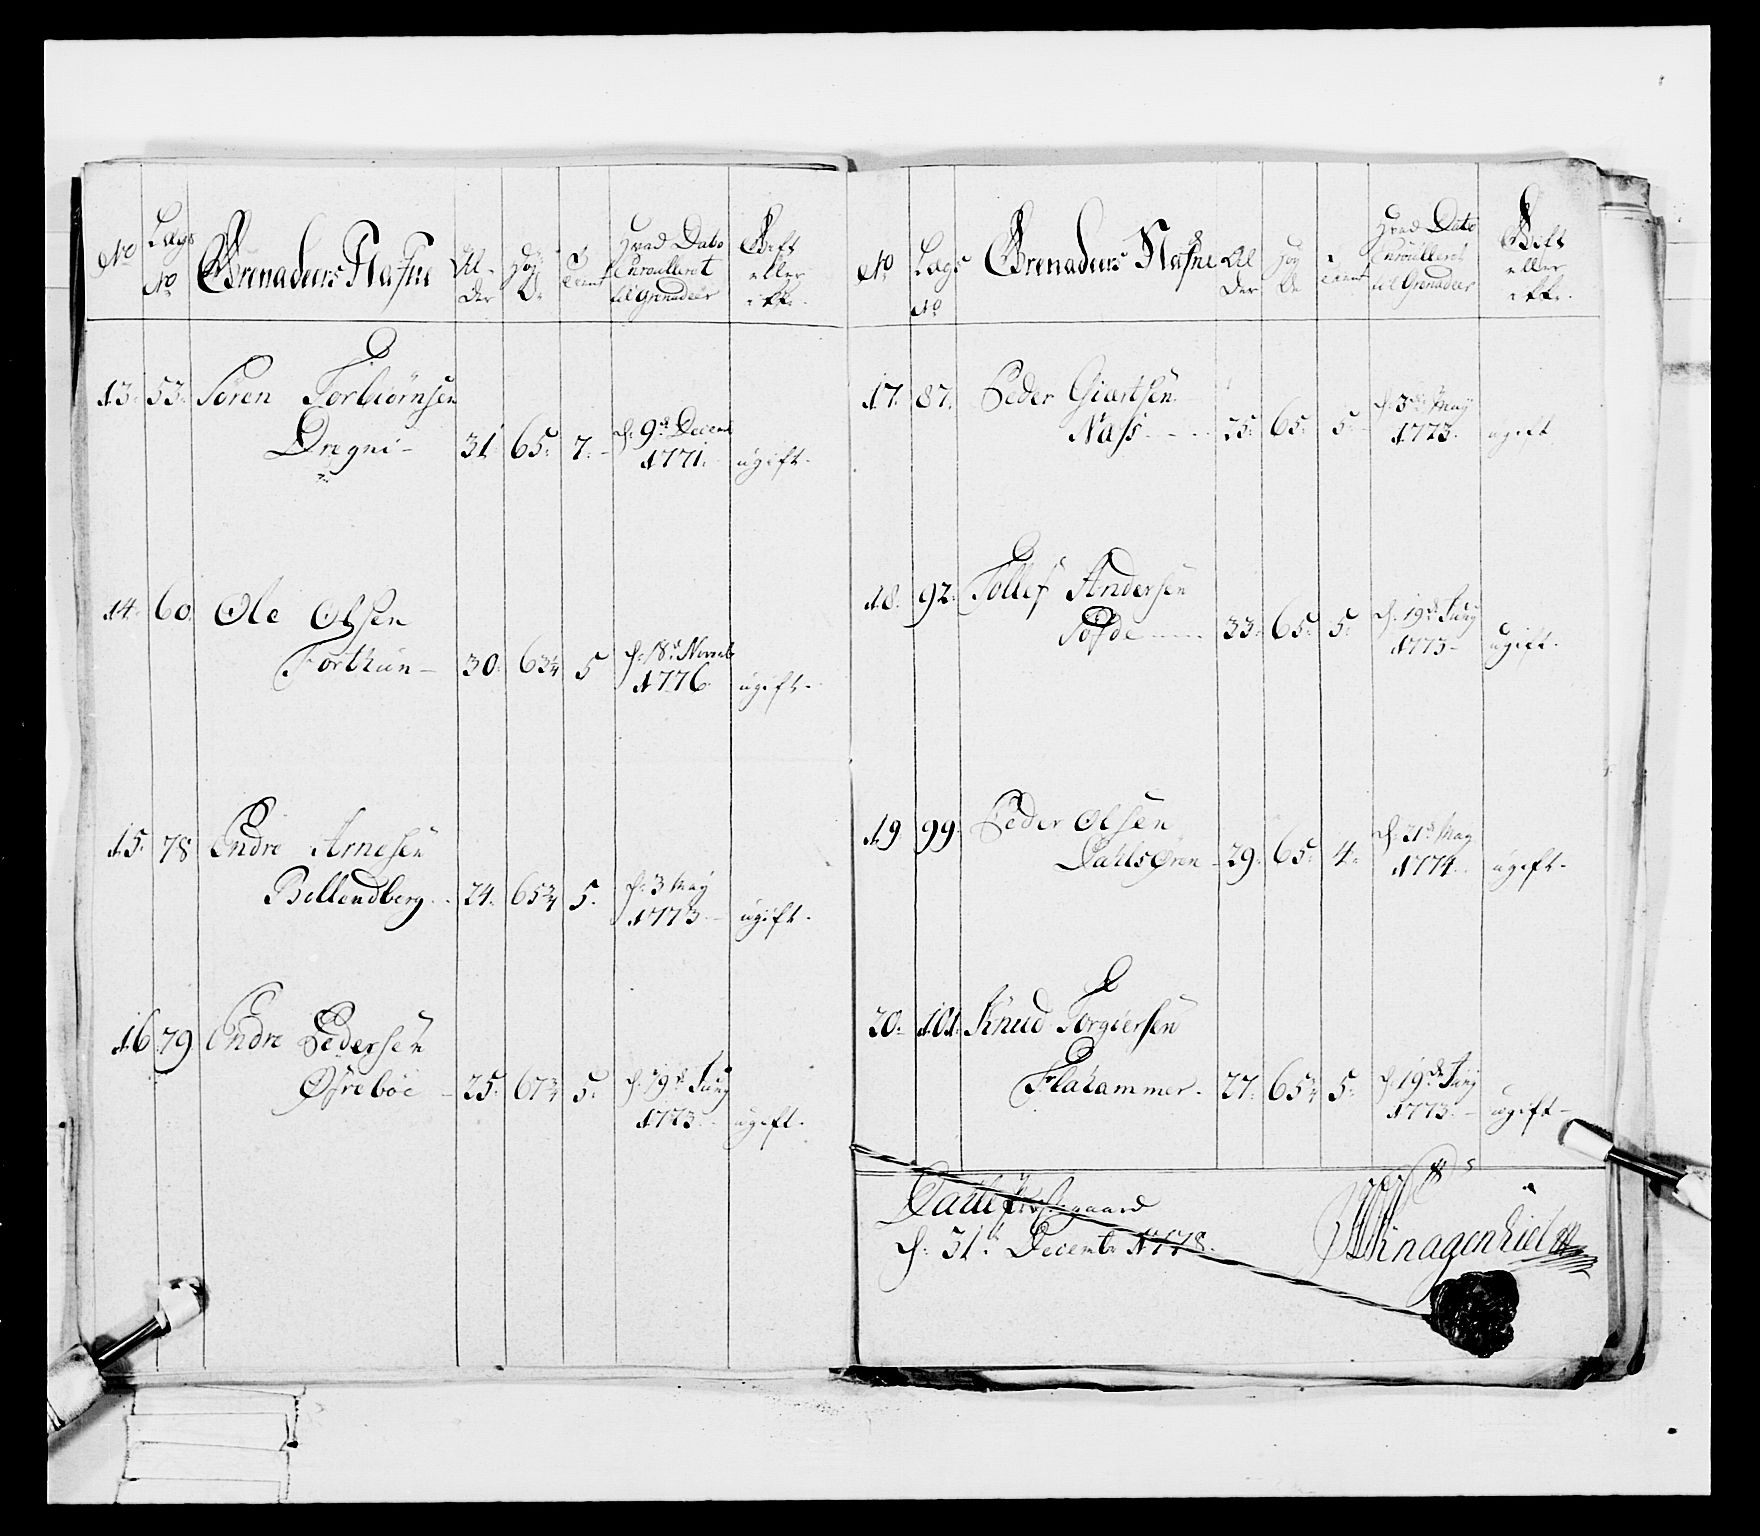 No Lægs No Grenadeurs Nafne Alder Høyde Tient Hvad Dato Enroulleret til Grenadeer Gift eller ikke.
13. 53. Sören Torbiörnsen
Dregni - 31. 65. 7. - d: 9de Decemb
1771. ugift.
14. 60 Ole Olsen
Forthun - 30. 63 5 d: 18de Novemb
1776. ugift.
15. 78 Endre Arnesen
Bellendberg. - 24. 65 3/4 5. d: 3 May
1773. - ugift.
16 79 Endre Pedersen
Øfrebøe - 25. 67 5. d: 19de Juny
1773. - ugift.
No Lægs No Grenadeurs Nafne Alder Høyde Tient Hvad Dato Enroulleret til Grenadeer Gift eller ikke.
17. 87. Peder Giertsen
Næss - - - 25. 65. 5. - d: 3de May
1773. ugift
18. 92. Tollef Andersen
33. 65. 5. d: 19de Juny
1773 - ugift.
19 99. Peder Olsen
Dahlsøren - 29. 65. 4. d: 21de May
1774. ugift.
20. 101. Knud Torgiersen
Flahammer. 27. 65 5. d: 19de Juny
1773. - ugift -
d: 31te Decembr 1778.
Knagenhielm